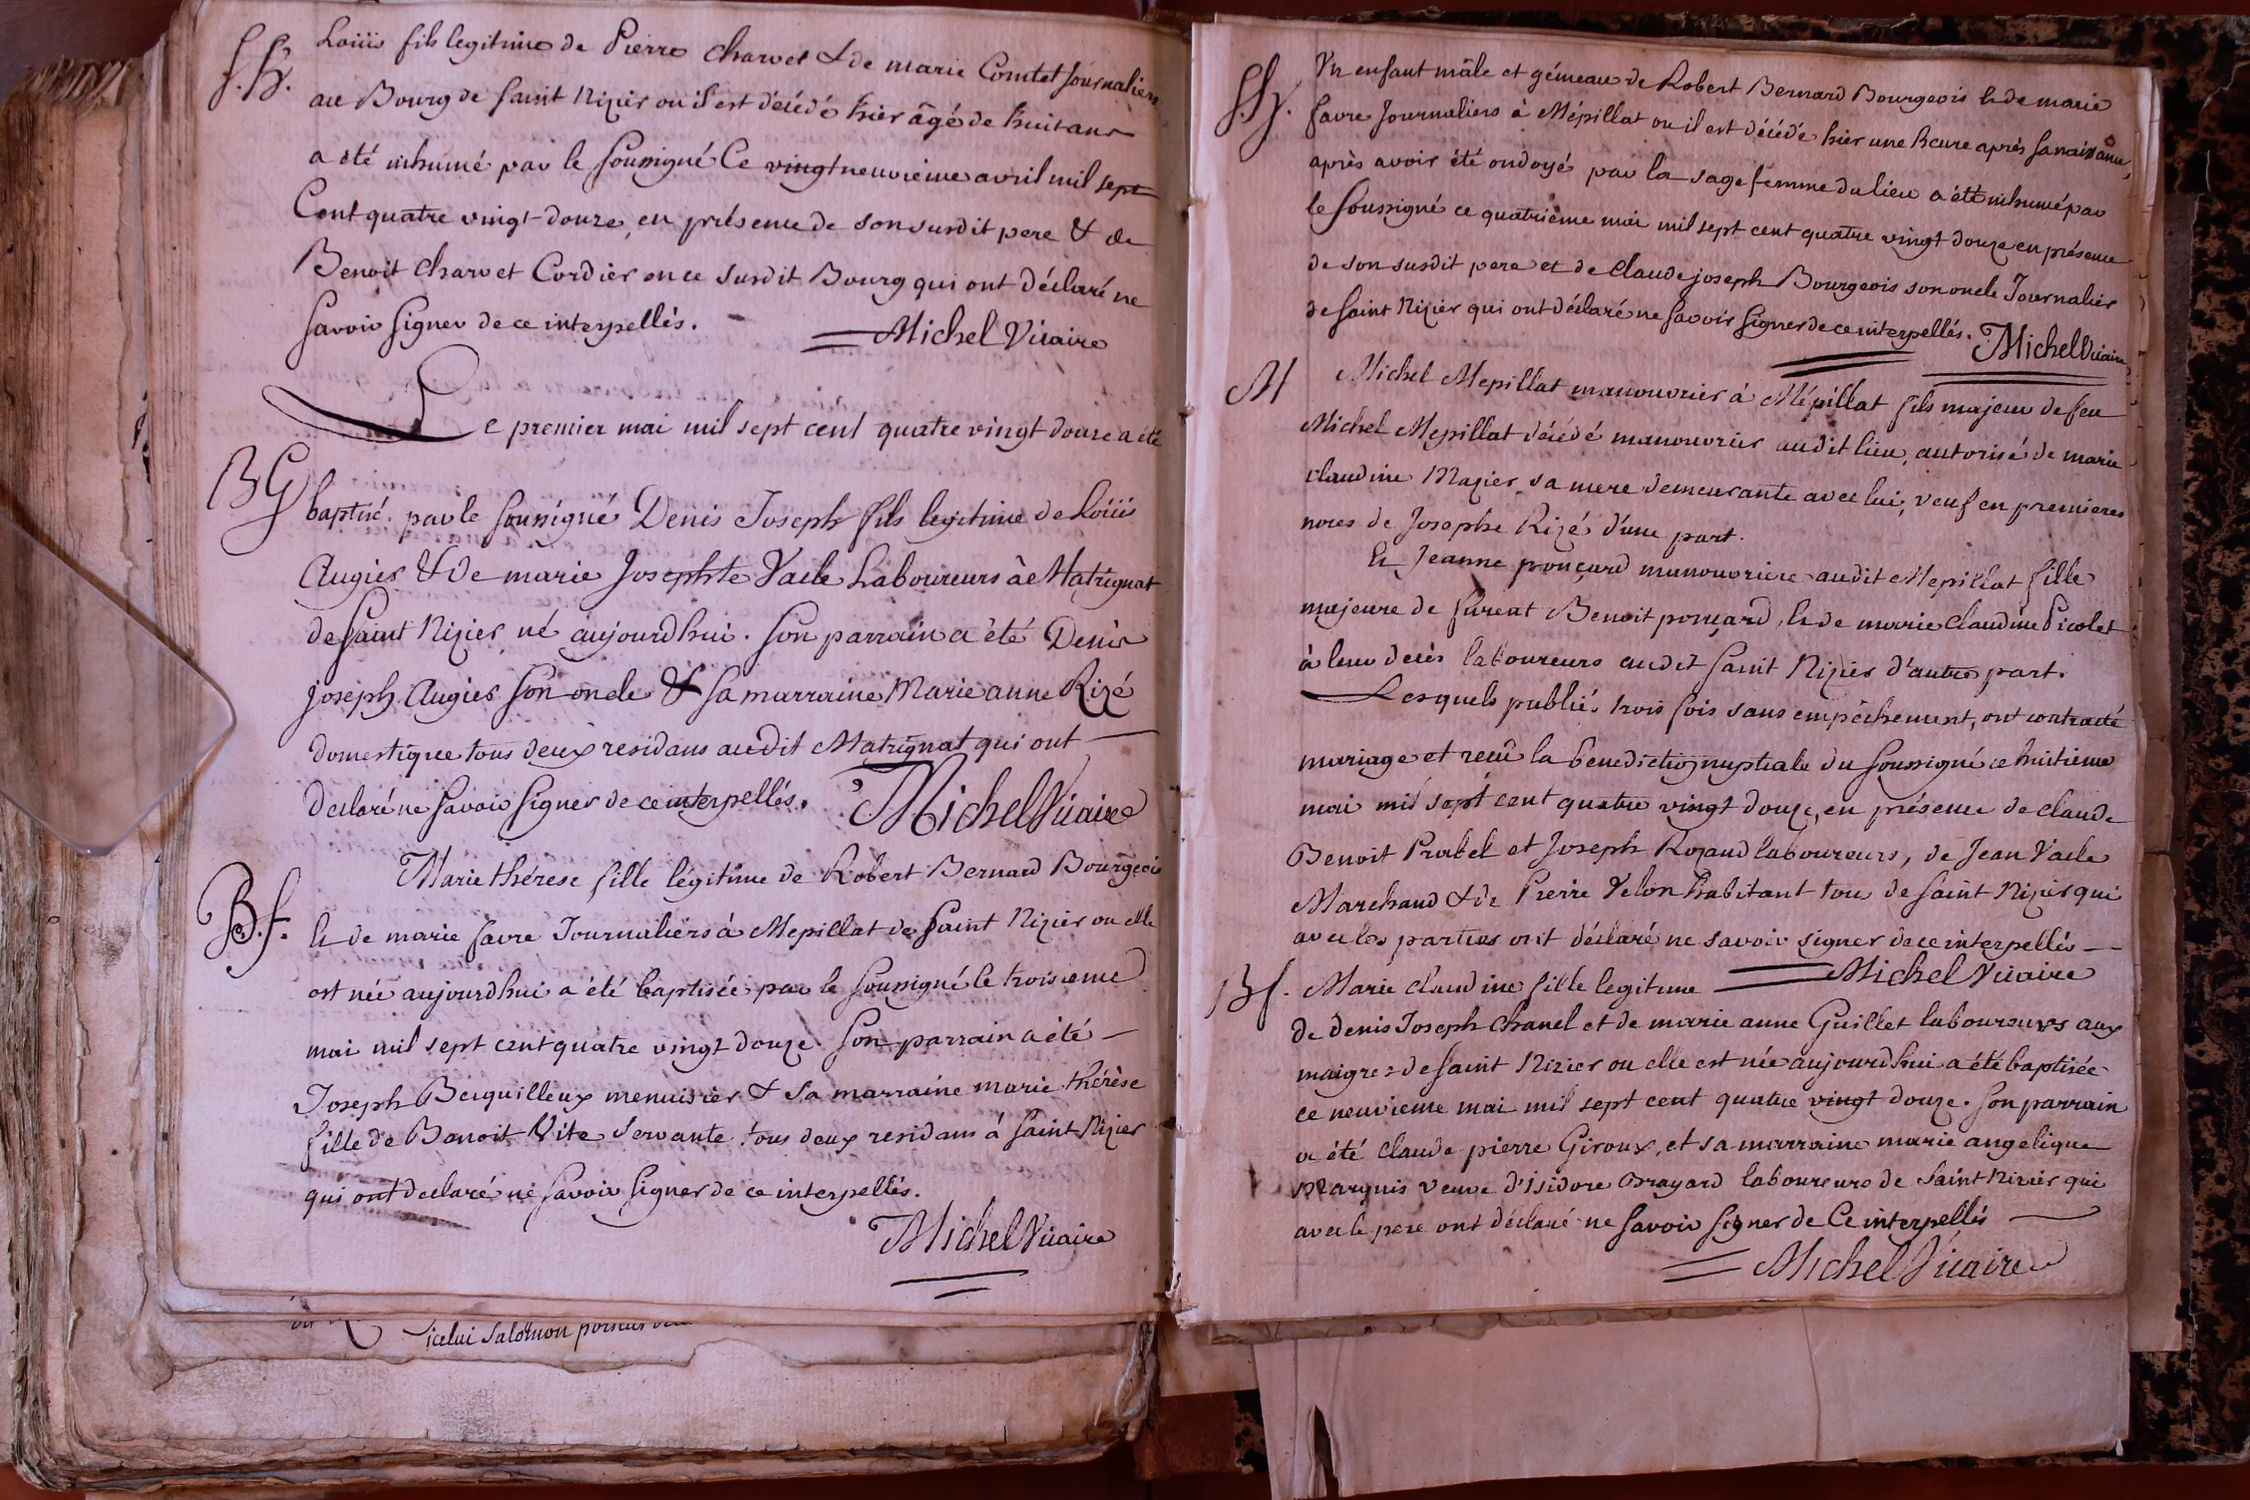 Loüis fils legitime de Pierre Charvet & de marie Comtet Journaliers
S.G. au Bourg de Saint Nizier ou il est décédé hier âgé de huit ans
a été inhumé par le soussigné Ce vingtneuvieme avril mil sept
Cent quatre vingt douze, en présence de son susdit pere & de
Benoit Charvet Cordier en ce susdit Bourg qui ont déclaré ne
savoir signer de ce interpellés.
Michel Vicaire
Le premier mai mil sept cent quatre vingt douze a été
BG baptisé par le soussigné Denis Joseph fils legitime de Loüis
Augier & de marie Josephte Vaile Laboureurs à Matrignat
de Saint Nizier né aujourdhui. Son parrain a été Denis
joseph Augier son oncle & sa marraine Marie anne Rizé
domestique tous deux residans audit Matrignat qui ont
declaré ne savoir signer de ce interpellés.
Michel Vicaire
Marie thérese fille légitime de Robert Bernard Bourgeois
B.f. & de marie favre Journaliers à Mepillat de Saint Nizier ou elle
est née aujourdhui a été baptisée par le soussigné le troisieme
mai mil sept cent quatre vingt douze. Son parrain a été
Joseph Becquilleux menuisier & sa marraine marie thérèse
fille de Benoit Vite Servante tous deux residans à Saint Nizier
qui ont declaré ne savoir signer de ce interpellés.
Michel Vicaire
icelui Salomon
Un enfant mâle et gémeau de Robert Bernard Bourgeois & de marie
favre Journaliers à Mépillat ou il est décédé hier une heure après sa naissance,
après avoir été ondoyé par la sage femme du lieu a été inhumé par
le soussigné ce quatrième mai mil sept cent quatre vingt douze en présence
de son susdit pere et de Claude joseph Bourgeois son oncle Journalier
de Saint Nizier qui ont déclaré ne savoir signer de ce interpellés.
Michel Vicaire
M Michel Mepillat manouvrier à Mépillat fils majeur de feu
Michel Mepillat décédé manouvrier audit lieu, autorisé de marie
claudine Mazier sa mere demeurante avec lui, veuf en premieres
noces de Josephe Rizé d'une part.
& Jeanne ponçard manouvriere audit Mepillat fille
majeure de furent Benoit ponçard, & de marie claudine Picolet
à leur decès laboureurs audit Saint Nizier d'autre part.
Lesquels publiés trois fois sans empêchement, ont contracté
mariage et reçu la benediction nuptiale du soussigné ce huitieme
mai mil sept cent quatre vingt douze, en présence de claude
Benoit Prabel et Joseph Rozand laboureurs, de Jean Vaile
Marchand & de Pierre Velon habitant tous de Saint Nizier qui
avec les parties ont déclaré ne savoir signer de ce interpellés
Michel Vicaire
Bf. Marie claudine fille legitime
de denis Joseph Chanel et de marie anne Guillet laboureurs aux
maigres de Saint Nizier ou elle est née aujourdhui a été baptisée
ce neuvieme mai mil sept cent quatre vingt douze. Son parrain
a été claude pierre Giroux, et sa marraine marie angelique
Marquis veuve d'isidore Brayard laboureurs de Saint Nizier qui
avec le pere ont déclaré ne savoir signer de Ce interpellés
Michel Vicaire